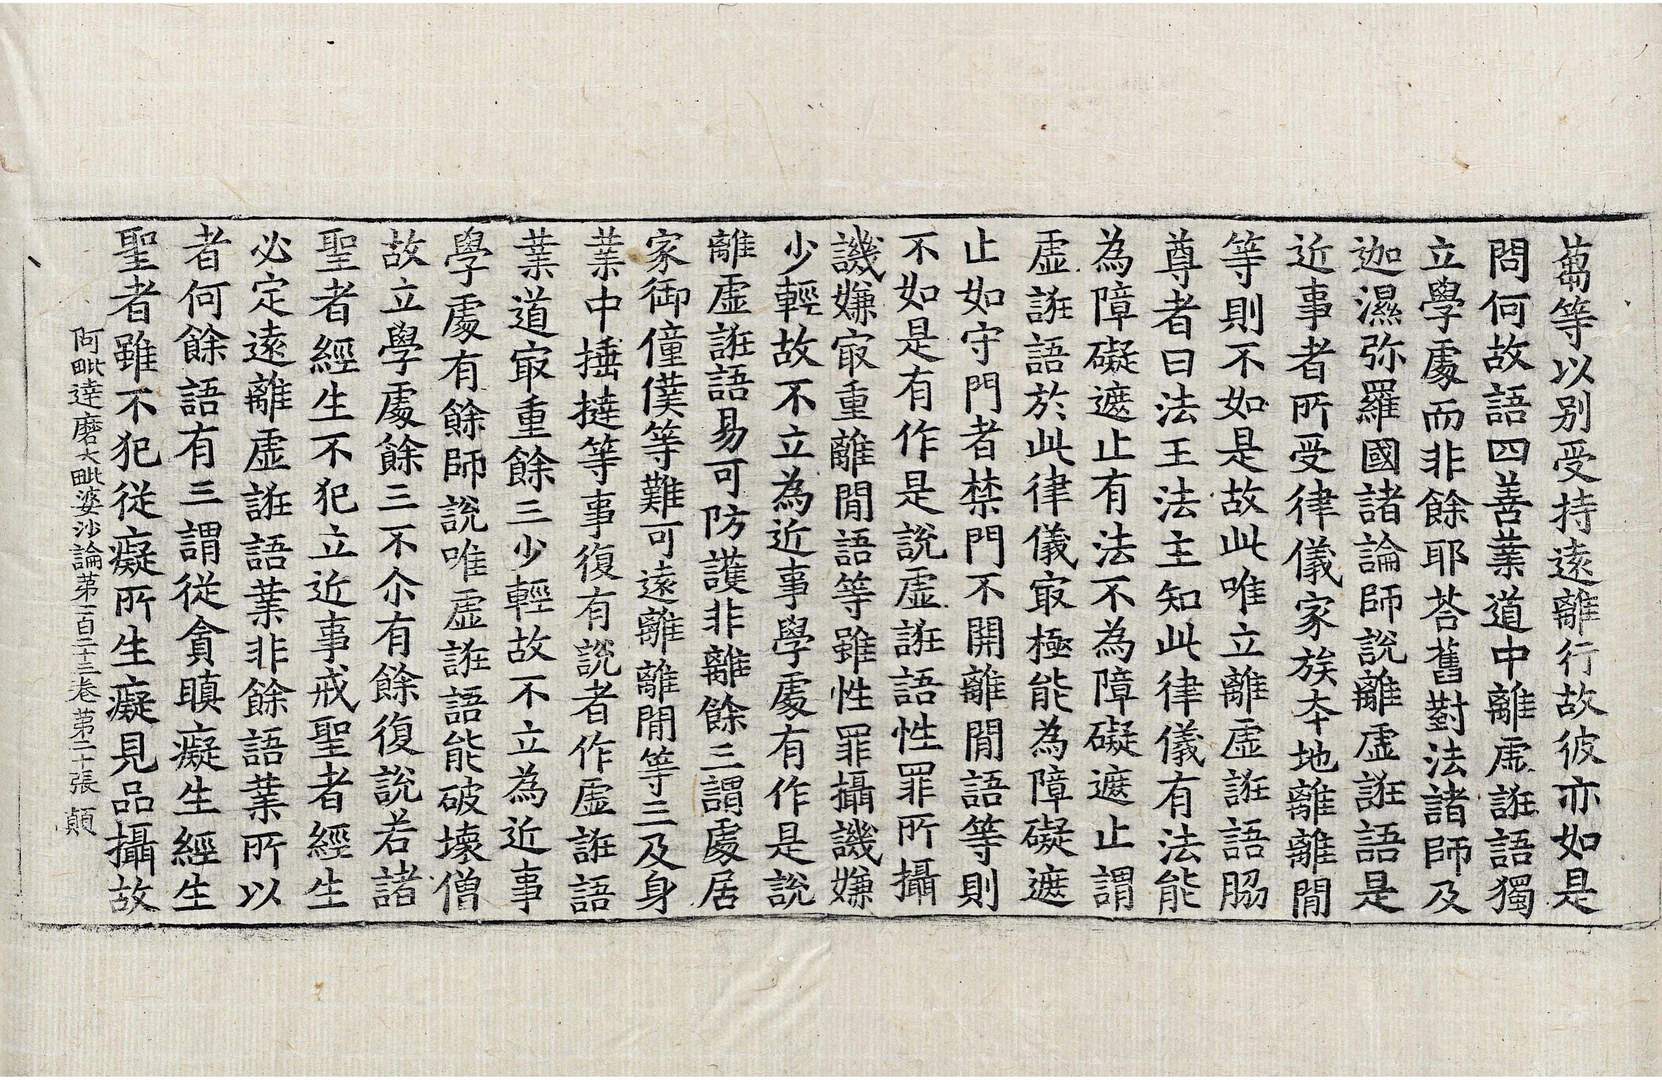 蔔等以別受持遠離行故彼亦如是
問何故語四善業道中離虛誑語獨
立學處而非餘耶荅舊對法諸師及
迦濕弥羅國諸論師說離虛誑語是
近事者所受律儀家族本地離離間
等則不如是故此唯立離虛誑語脇
尊者曰法王法主知此律儀有法能
為障礙遮止有法不為障礙遮止謂
虛誑語於此律儀㝡極能為障礙遮
止如守門者禁門不開離間語等則
不如是有作是說虛誑語性罪所攝
譏嫌㝡重離間語等雖性罪攝譏嫌
少輕故不立為近事學處有作是說
離虛誑語易可防護非離餘三謂處居
家御僮僕等難可遠離離間等三及身
業中捶撻等事復有說者作虛誑語
業道㝡重餘三少輕故不立為近事
學處有餘師說唯虛誑語能破壞僧
故立學處餘三不尒有餘復說若諸
聖者經生不犯立近事戒聖者經生
必定遠離虛誑語業非餘語業所以
者何餘語有三謂從貪瞋癡生經生
聖者雖不犯從癡所生癡見品攝故
阿毗達磨大毗婆沙論第一百二十三卷第二十張 顛